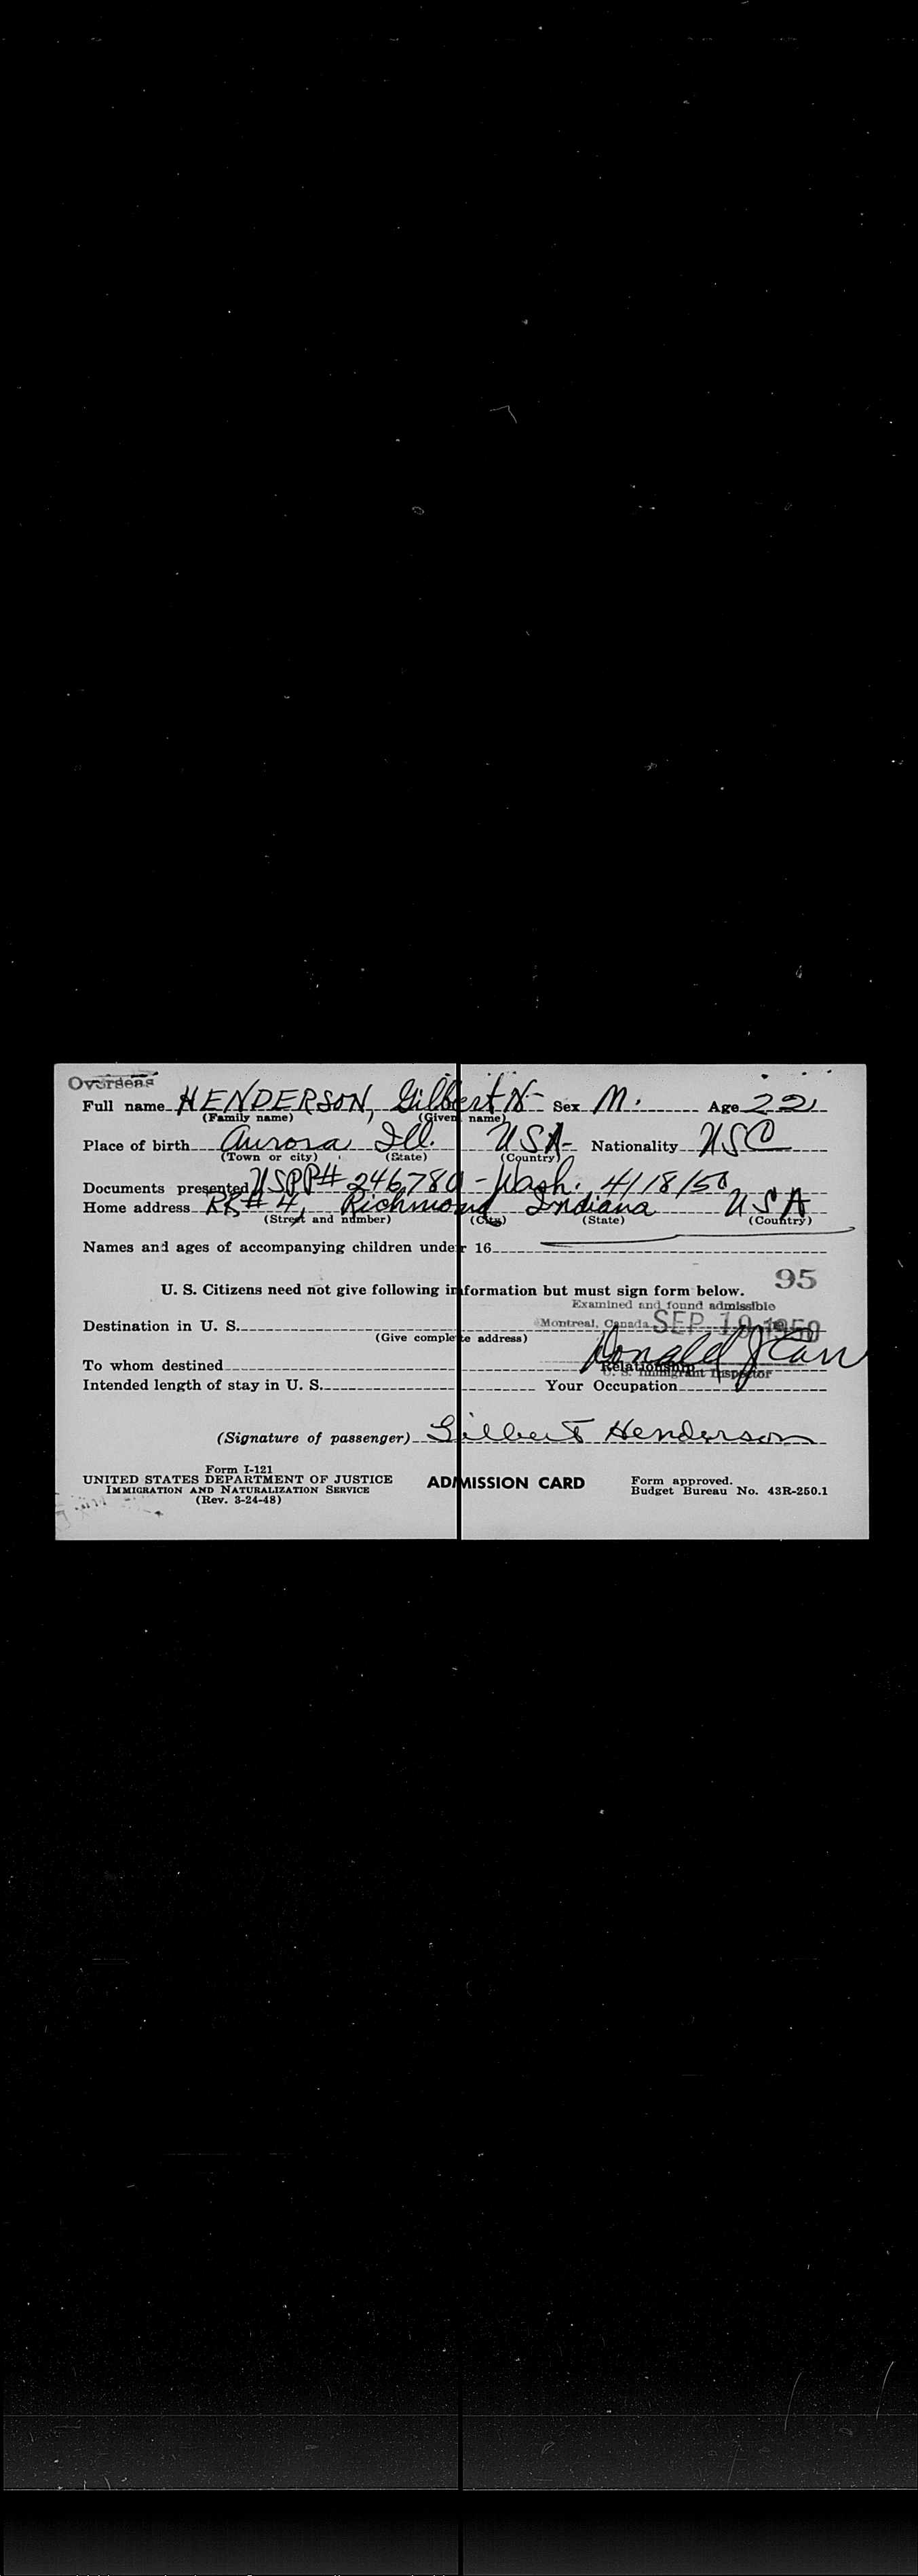 Overseas
Full name HENDERSON, Gilbert N Sex M. Age 22
(Family name) (Given name)
Place of birth Aurora Ill. USA Nationality USC
(Town or city) (State) (Country)
Documents presented USPP# 246780 - Wash. 4/18/50
Home address RR # 4, Richmond Indiana USA
(Street and number) (City) (State) (Country)
Names and ages of accompanying children under 16
95
U. S. Citizens need not give following information but must sign form below.
Examined and found admissible
Destination in U. S. Montreal, Canada SEP 19 1950
(Give complete address)
Donald J Carr
To whom destined Relationship
U. S. Immigrant Inspector
Intended length of stay in U. S. Your Occupation
(Signature of passenger) Gilbert Henderson
Form I-121
UNITED STATES DEPARTMENT OF JUSTICE ADMISSION CARD Form approved.
IMMIGRATION AND NATURALIZATION SERVICE Budget Bureau No. 43R-250.1
(Rev. 3-24-48)